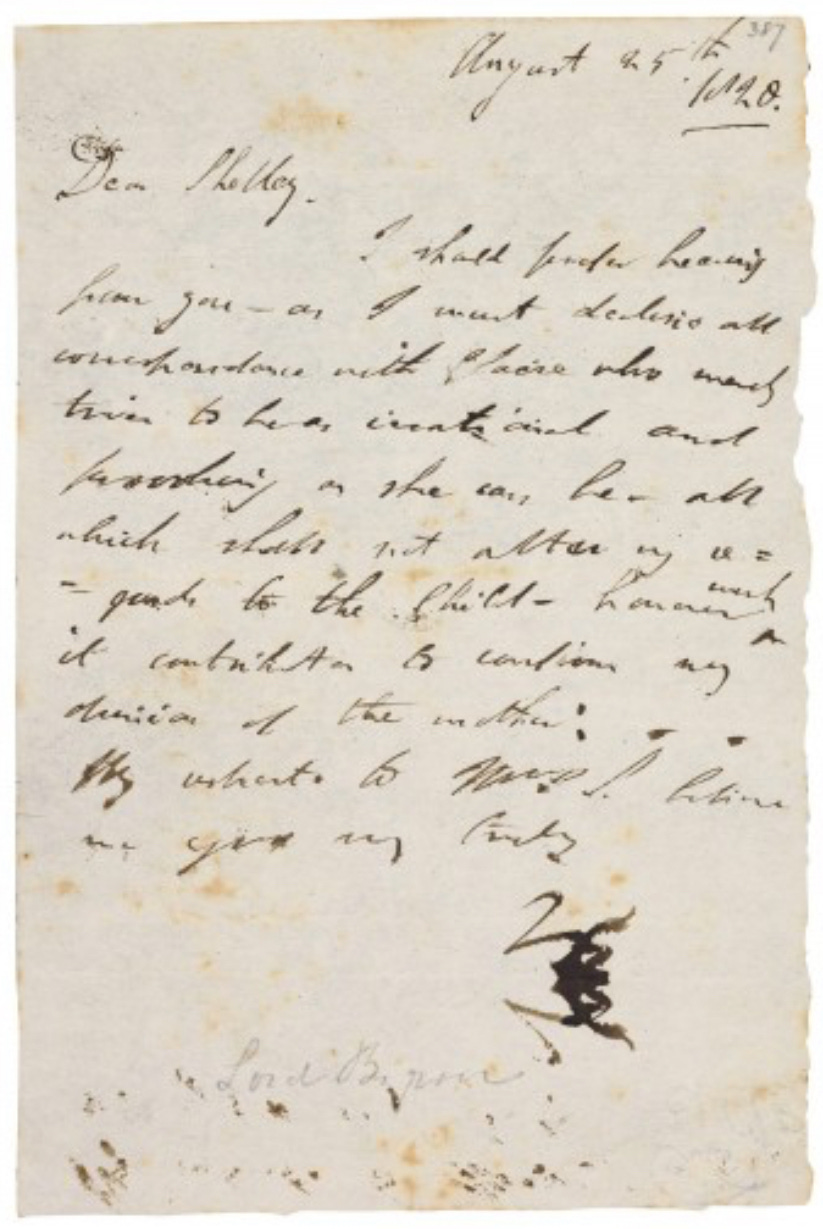 387
August 25th
1820.
Dear Shelley.
I should prefer hearing
from you – as I must decline all
correspondence with Claire who merely
tries to be as irrational and
provoking as she can be – all
which shall not alter my re=
=gards to the Child – however much
it contributes to confirm my
opinion of the mother:
My respects to Mrs S. believe
me yrs very truly
Lord Byron